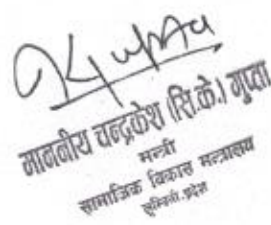 माननीय चन्द्रकेश (सि.के.) गुप्ता
मन्त्री
सामाजिक विकास मन्त्रालय
लुम्बिनी प्रदेश